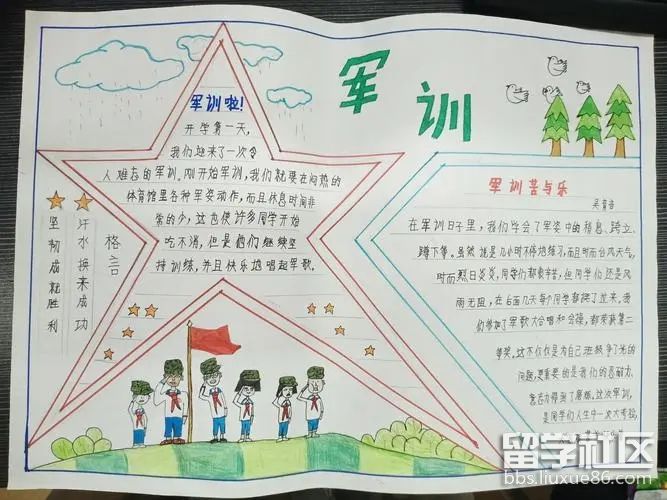 军训
军训啦!
开学第一天,
我们迎来了一次令
人难忘的军训。刚开始军训,我们就要在闷热的
体育馆里各种军姿动作,而且休息时间非
常的少,这也使许多同学开始
吃不消,但是他们继续坚
持训练,并且快乐地唱起军歌。
格言
汗水换来成功
坚韧成就胜利
军训苦与乐
在军训日子里,我们学会了军姿中的稍息、跨立、
蹲下等。虽然就是几小时不停地练习,而且时而台风天气,
时而烈日炎炎,同学们都很辛苦,但同学们还是风
雨无阻,在后面几天每个同学都挺了过来,我
们参加了军歌大合唱和会操,都荣获第二
等奖,这不仅仅是为自己班级争了光的
问题,更重要的是我们的忍耐力、
意志力得到了磨炼,这次军训,
是同学们人生中一次大考验,
留学社区
bbs.liuxue86.com